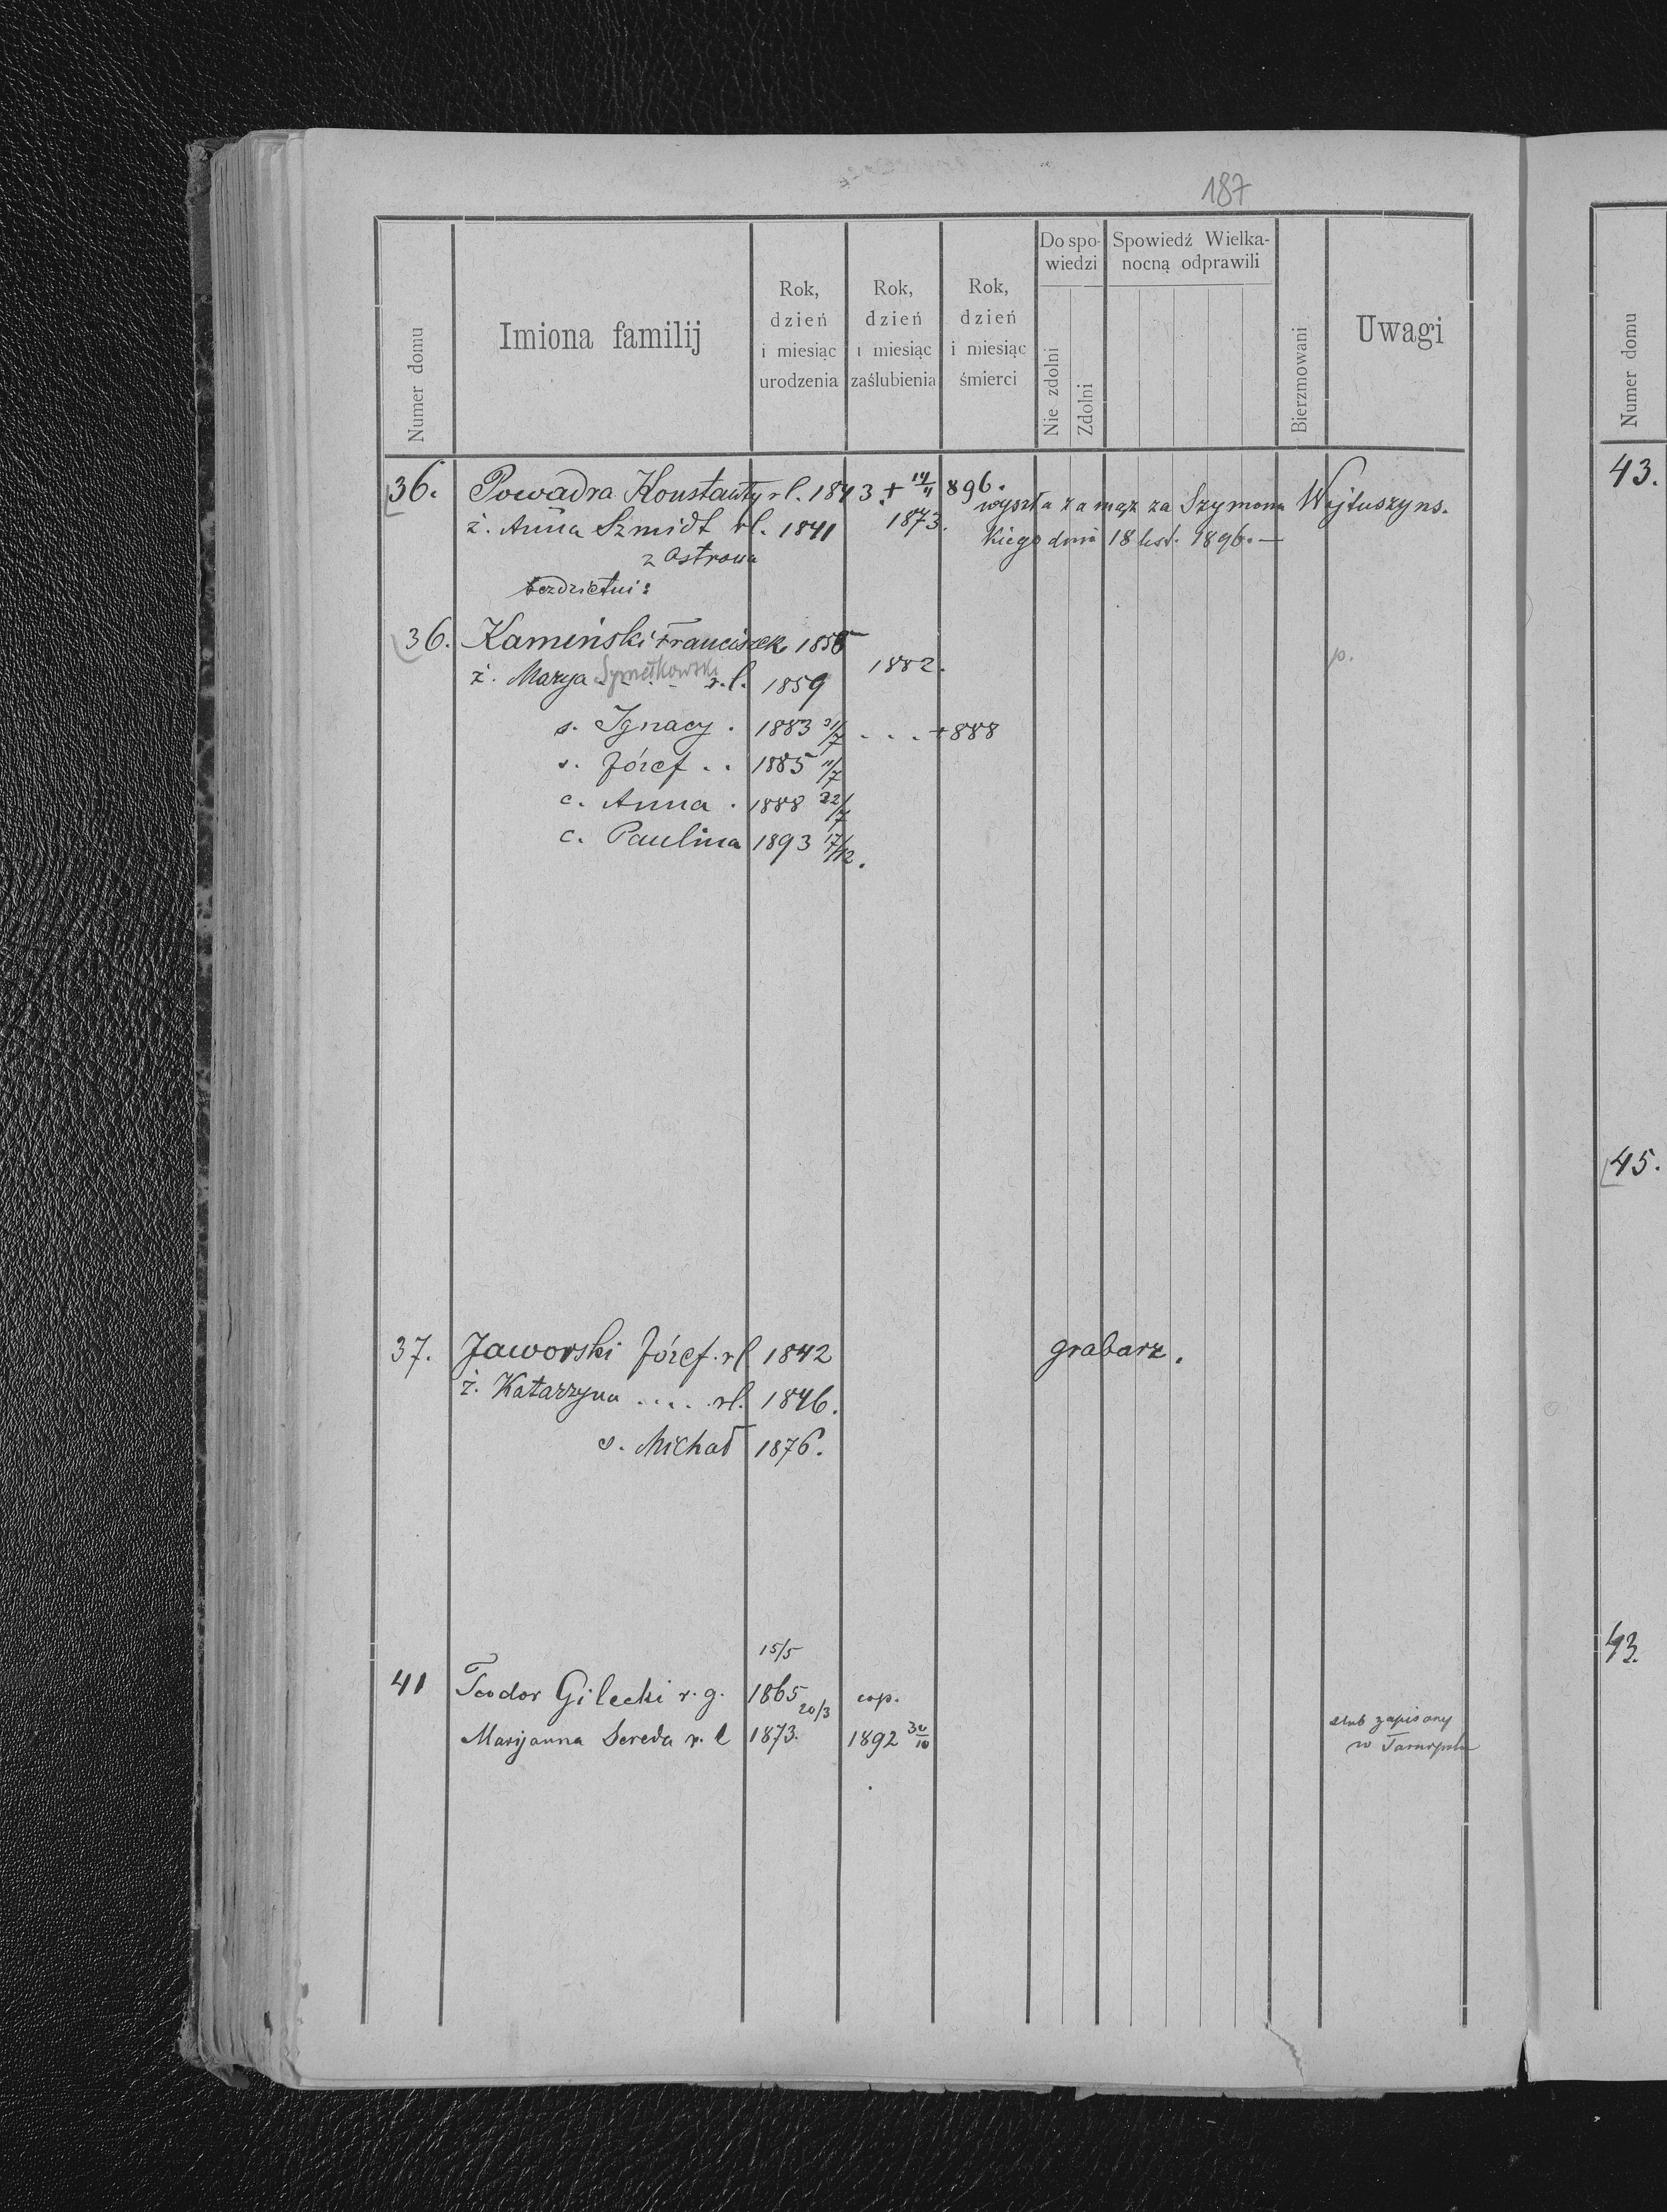 187
Numer domu
Imiona familij
Rok, dzień i miesiąc urodzenia
Rok, dzień i miesiąc zaślubienia
Rok, dzień i miesiąc śmierci
Do spowiedzi
Nie zdolni
Zdolni
Spowiedź Wielkanocną odprawili
Bierzmowani
Uwagi
Numer domu
36. Powadra Konstanty rl. 1843. + 14/11 896.
wyszła za mąż za Szymona Wojtuszyns.
ż. Anna Szmidt rl. 1841 1873.
kiego dnia 18 list. 1896. —
z Ostrowa
bezdzietni:
36. Kamiński Franciszek 1856
1882. p.
ż. Marya Symełkowska r.l. 1859
s. Ignacy . 1883 31/7 . . . +888
s. Józef . . 1885 11/7
c. Anna . 1888 22/7
c. Paulina 1893 17/12.
37. Jaworski Józef. rl 1842 grabarz.
ż. Katarzyna . . . . rl. 1846.
s. Michał 1876.
15/5
41 Teodor Gilecki r. g. 1865 cop.
20/3
Maryanna Sereda r. l 1873. 1892 30/10
ślub zapisany
w Tarnopolu
43.
45.
43.